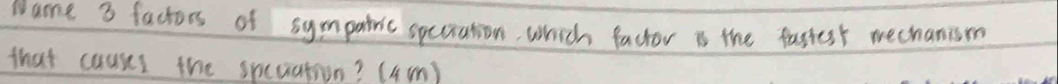 Name 3 factors of sympatric speciation. Which factor is the fastest mechanism
that causes the speciation? (4m)